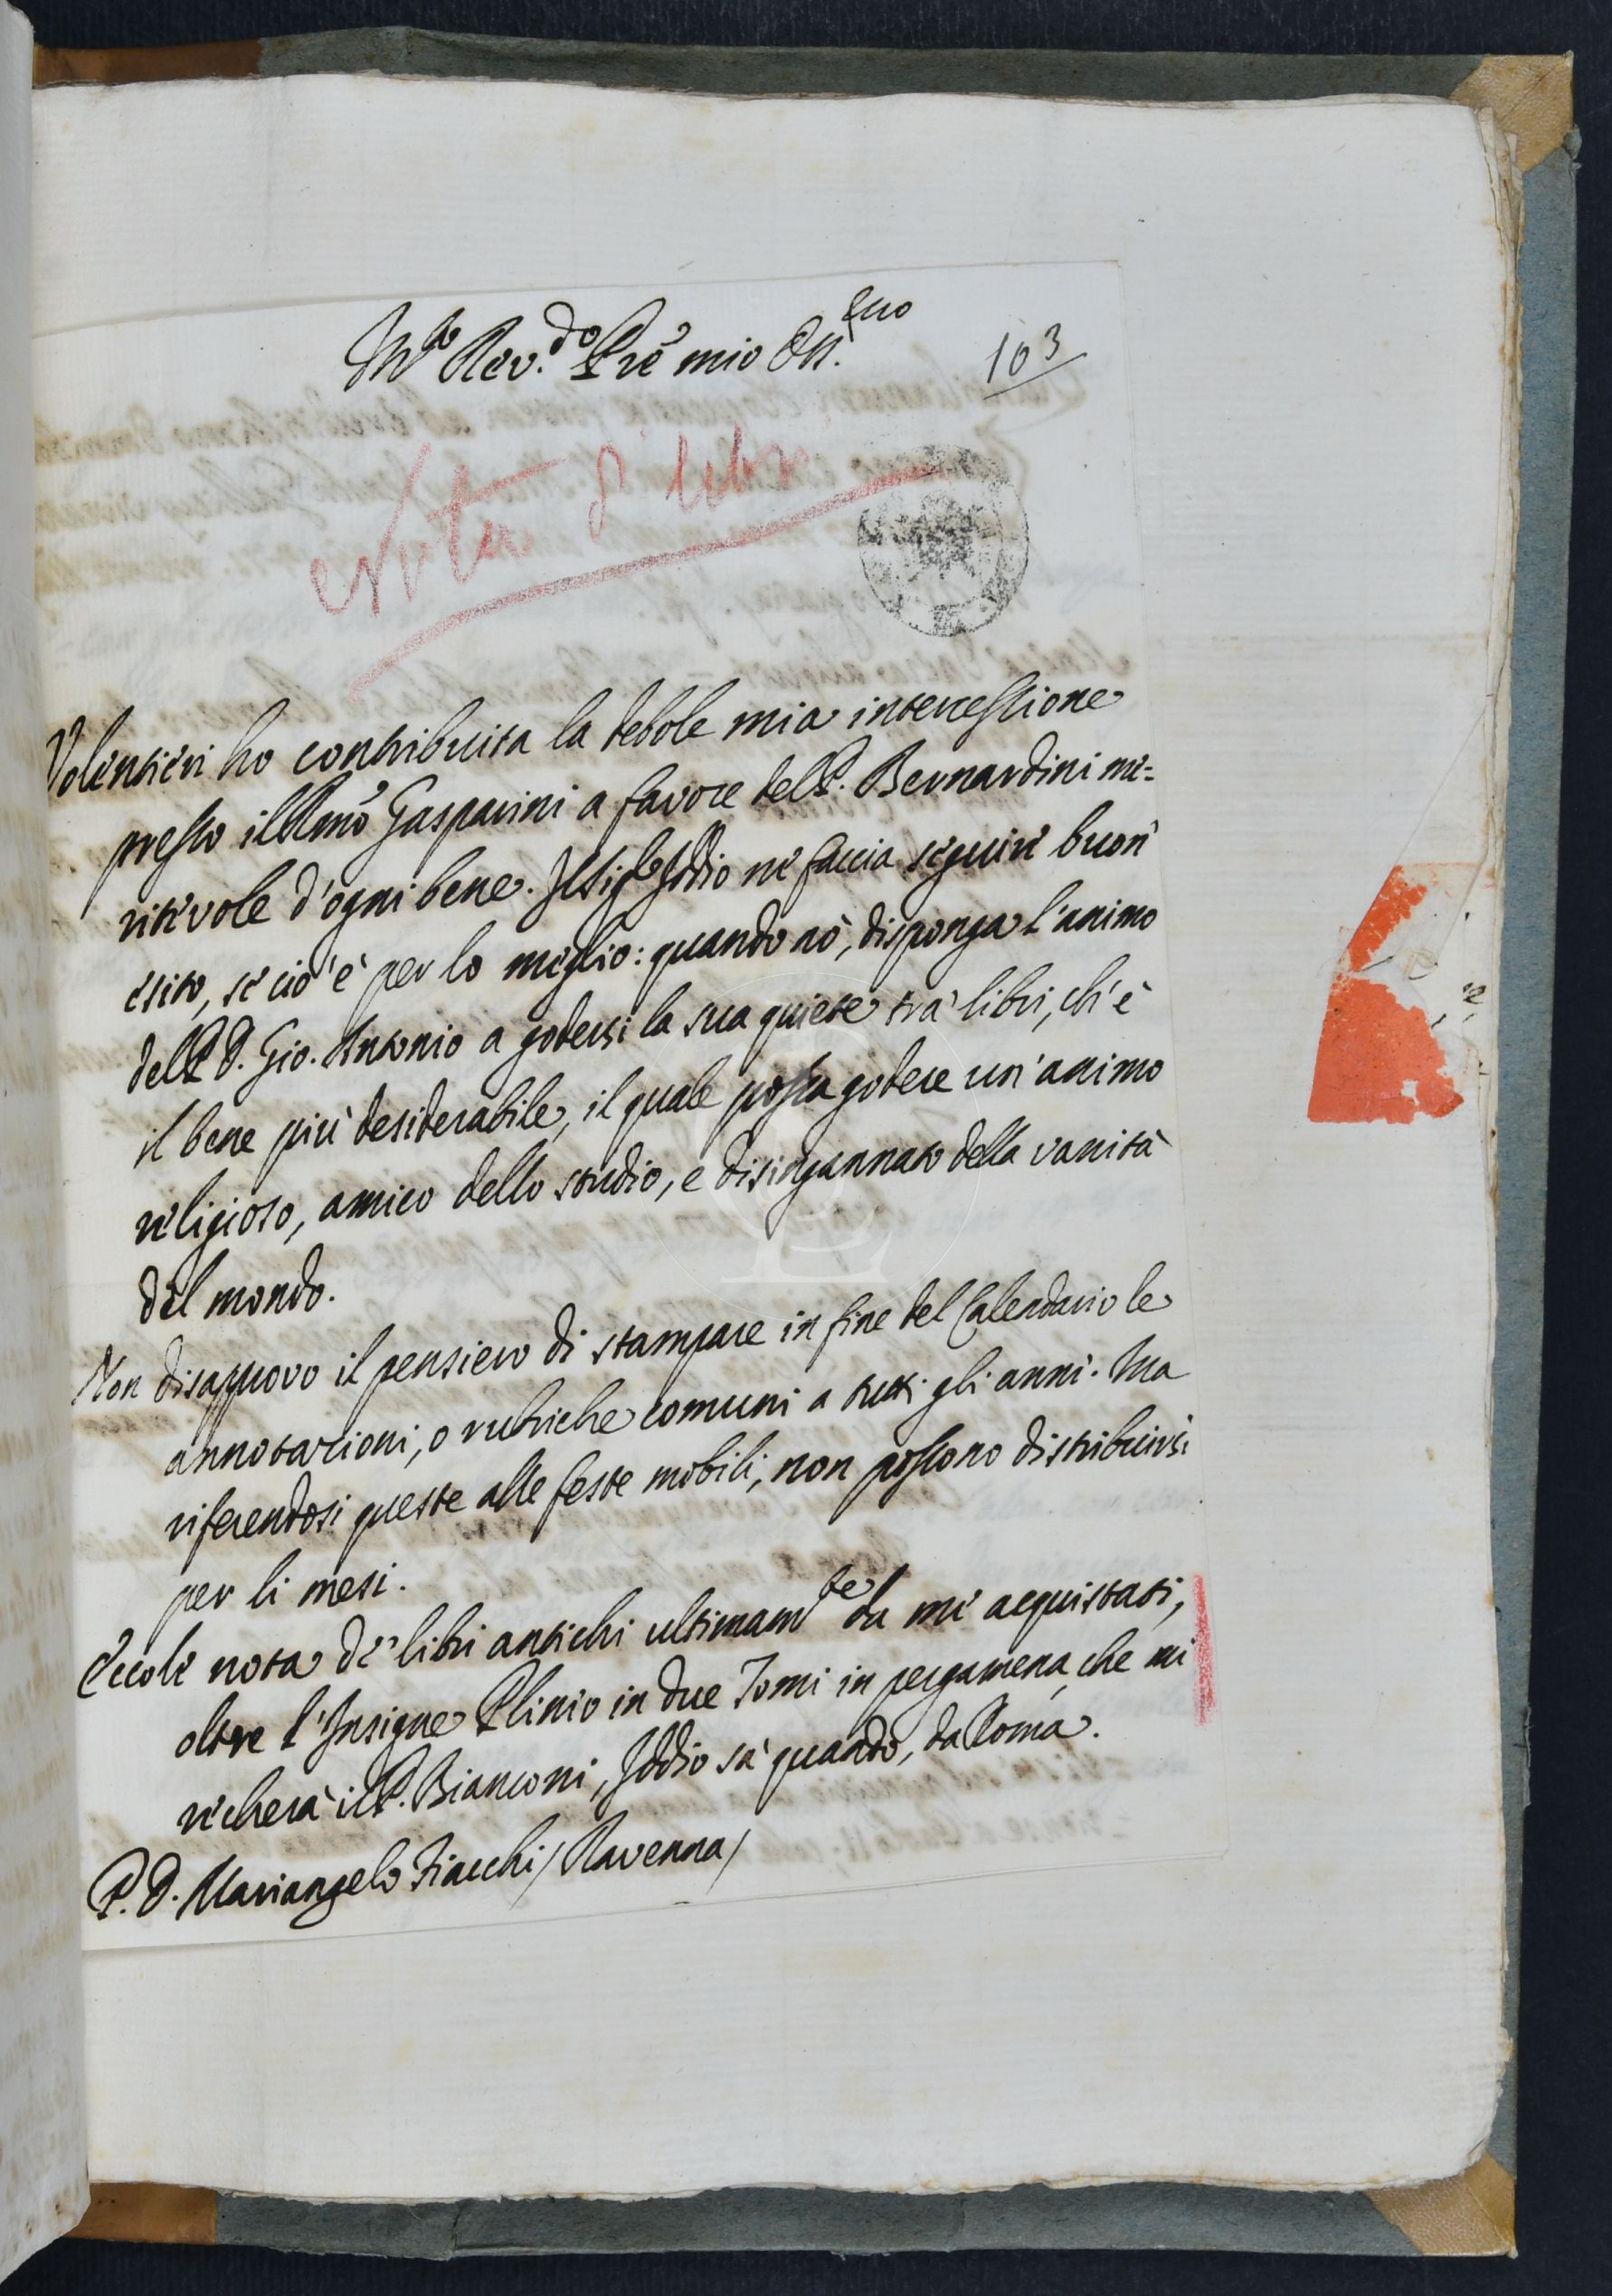 M.to Rev.do Pre mio On.mo
103
Nota di libri
Volentieri ho contribuita la debole mia intercessione
presso il Rmo Gasparini a favore del P. Bernardini me=
ritevole d'ogni bene. Il Sig.re Iddio ne faccia seguire buon
esito, se ciò è per lo meglio: quando nò, disponga l'animo
del P. D. Gio. Antonio a godersi la sua quiete trà libri, ch'è
il bene più desiderabile, il quale possa godere un'animo
religioso, amico dello studio, e disingannato della vanità
del mondo.
Non disapprovo il pensiero di stampare in fine del Calendario le
annotazioni, o rubriche comuni a tutti gli anni. Ma
riferendosi queste alle feste mobili, non possono distribuirsi
per li mesi.
Eccole nota de' libri antichi ultimam.te da me acquistati,
oltre l'Insigne Plinio in due Tomi in pergamena, che mi
recherà il P. Bianconi, Iddio sà quando, da Roma.
P. D. Mariangelo Fiacchi / Ravenna /